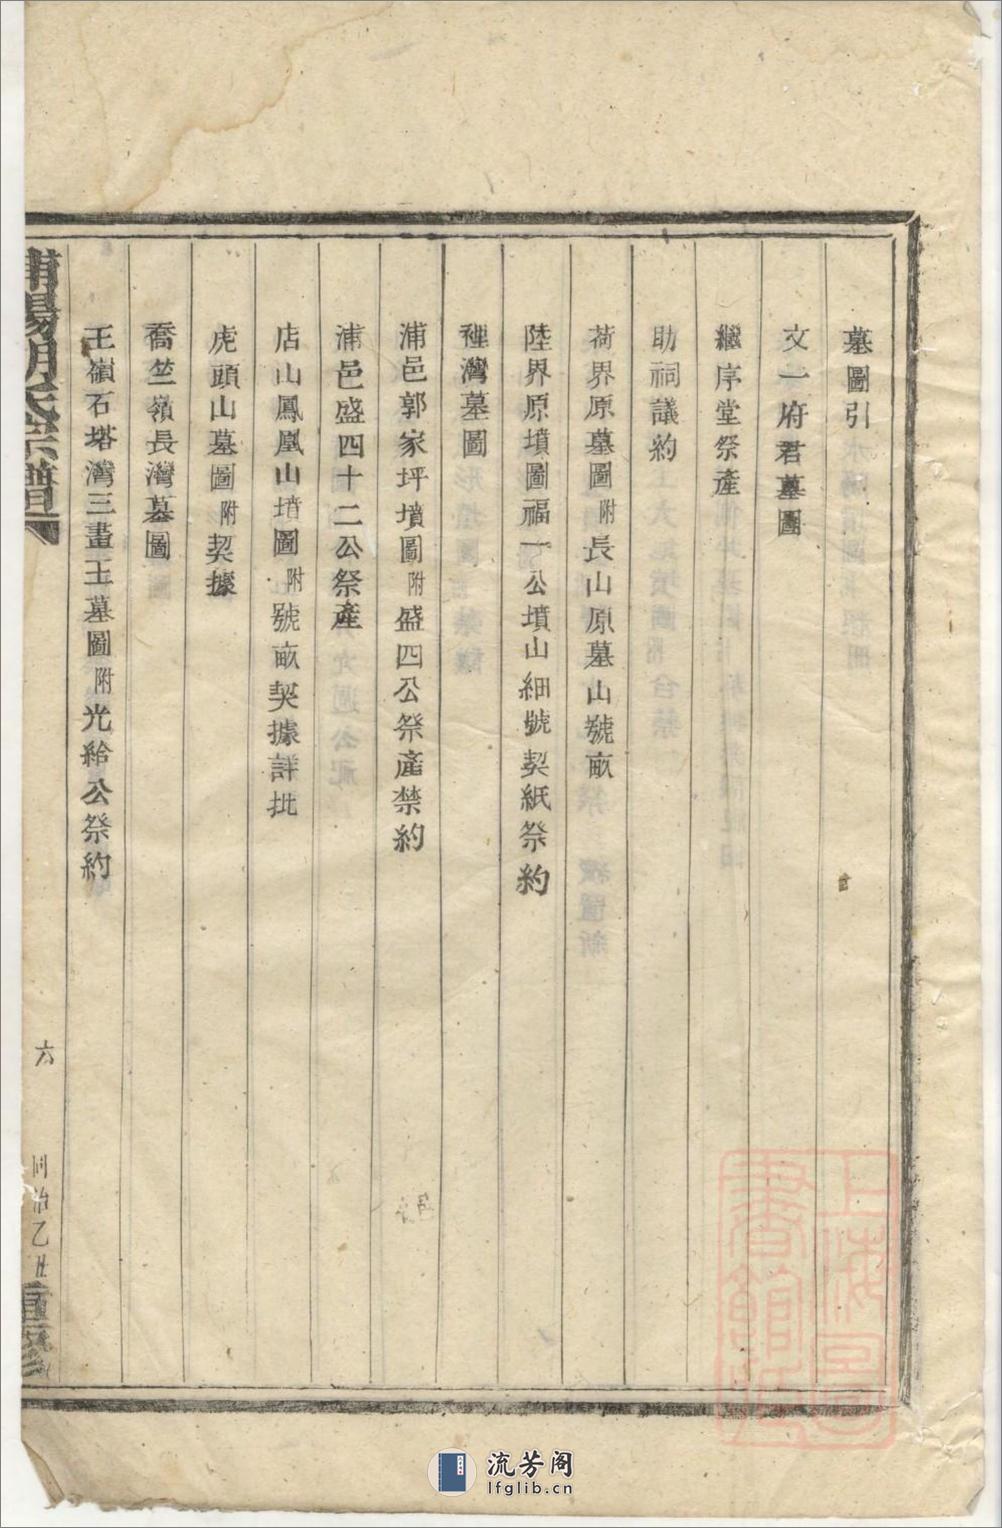 墓圖引
文一府君墓圖
繼序堂祭產
助祠議約
荷界原墓圖附長山原墓山號畝
陸界原墳圖福一公墳山細號契紙祭約
裡灣墓圖
浦邑郭家坪墳圖附盛四公祭產禁約
浦邑盛四十二公祭產
店山鳳凰山墳圖附號畝契據詳批
虎頭山墓圖附契據
喬竺嶺長灣墓圖
王嶺石塔灣三畫王墓圖附光給公祭約
浦陽 宗譜
六
同治乙丑重修
上海圖書館藏
流芳阁
lfglib.cn